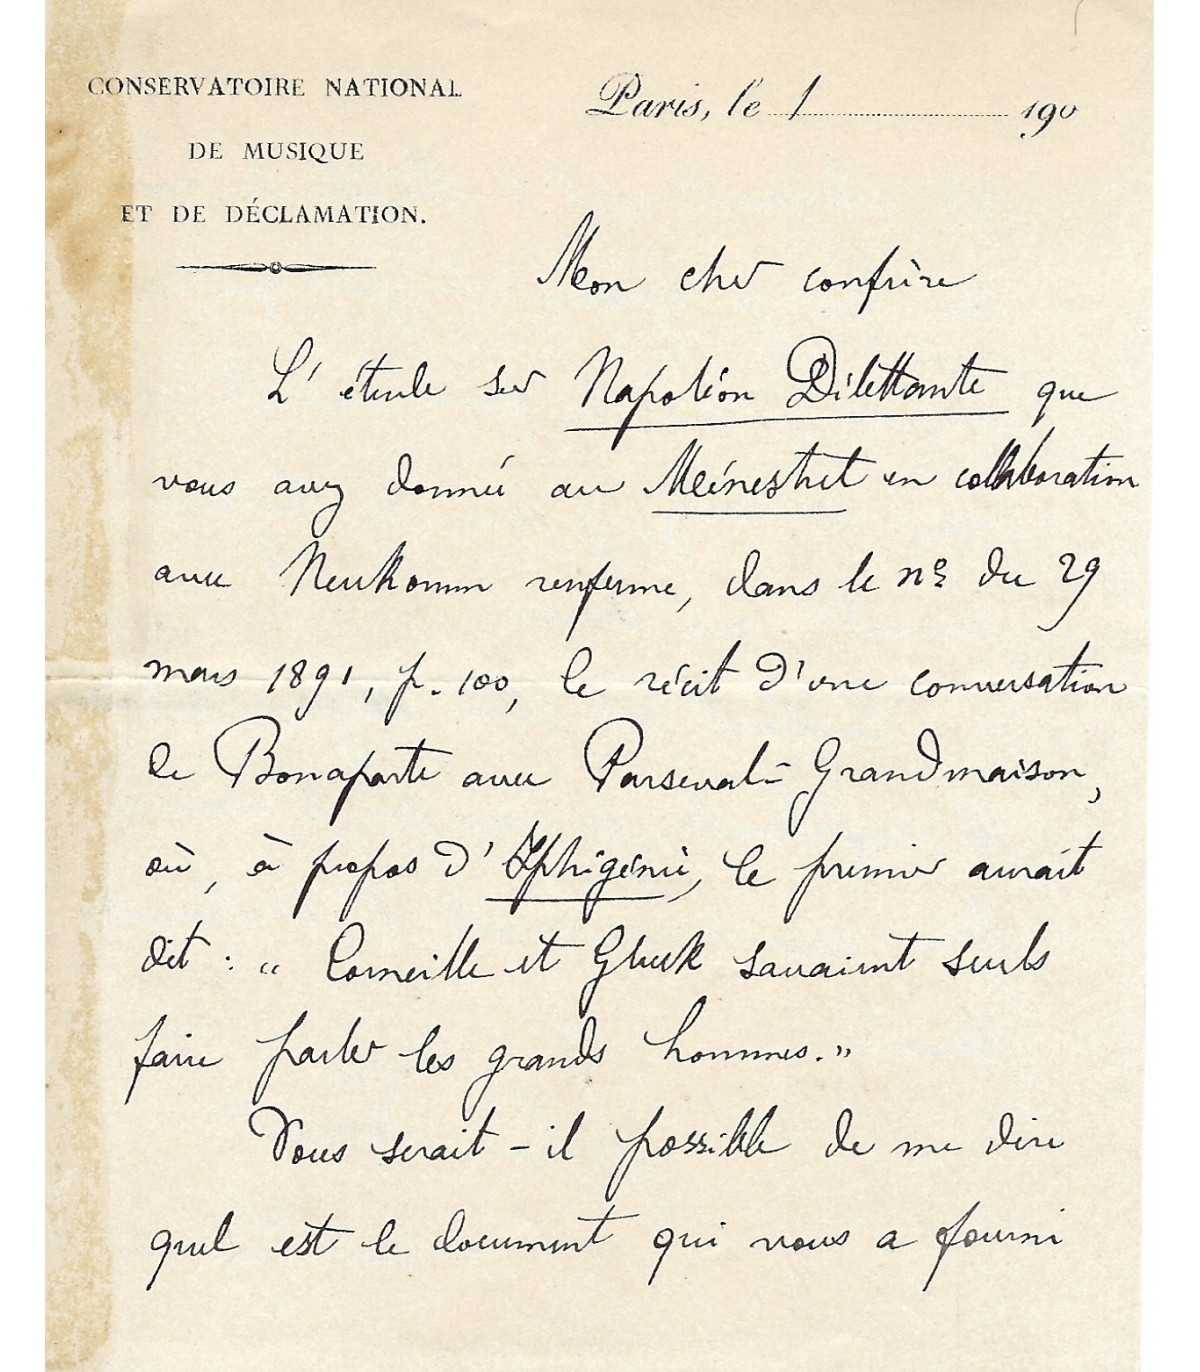 CONSERVATOIRE NATIONAL
DE MUSIQUE
ET DE DÉCLAMATION.
Paris, le 1 190
Mon cher confrère
L'étude sur Napoléon Dilettante que
vous avez donnée au Ménestrel en collaboration
avec Neukomm renferme, dans le nº du 29
mars 1891, p. 100, le récit d'une conversation
de Bonaparte avec Parseval-Grandmaison,
où, à propos d'Iphigénie, le premier aurait
dit : "Corneille et Gluck savaient seuls
faire parler les grands hommes."
Vous serait-il possible de me dire
quel est le document qui vous a fourni